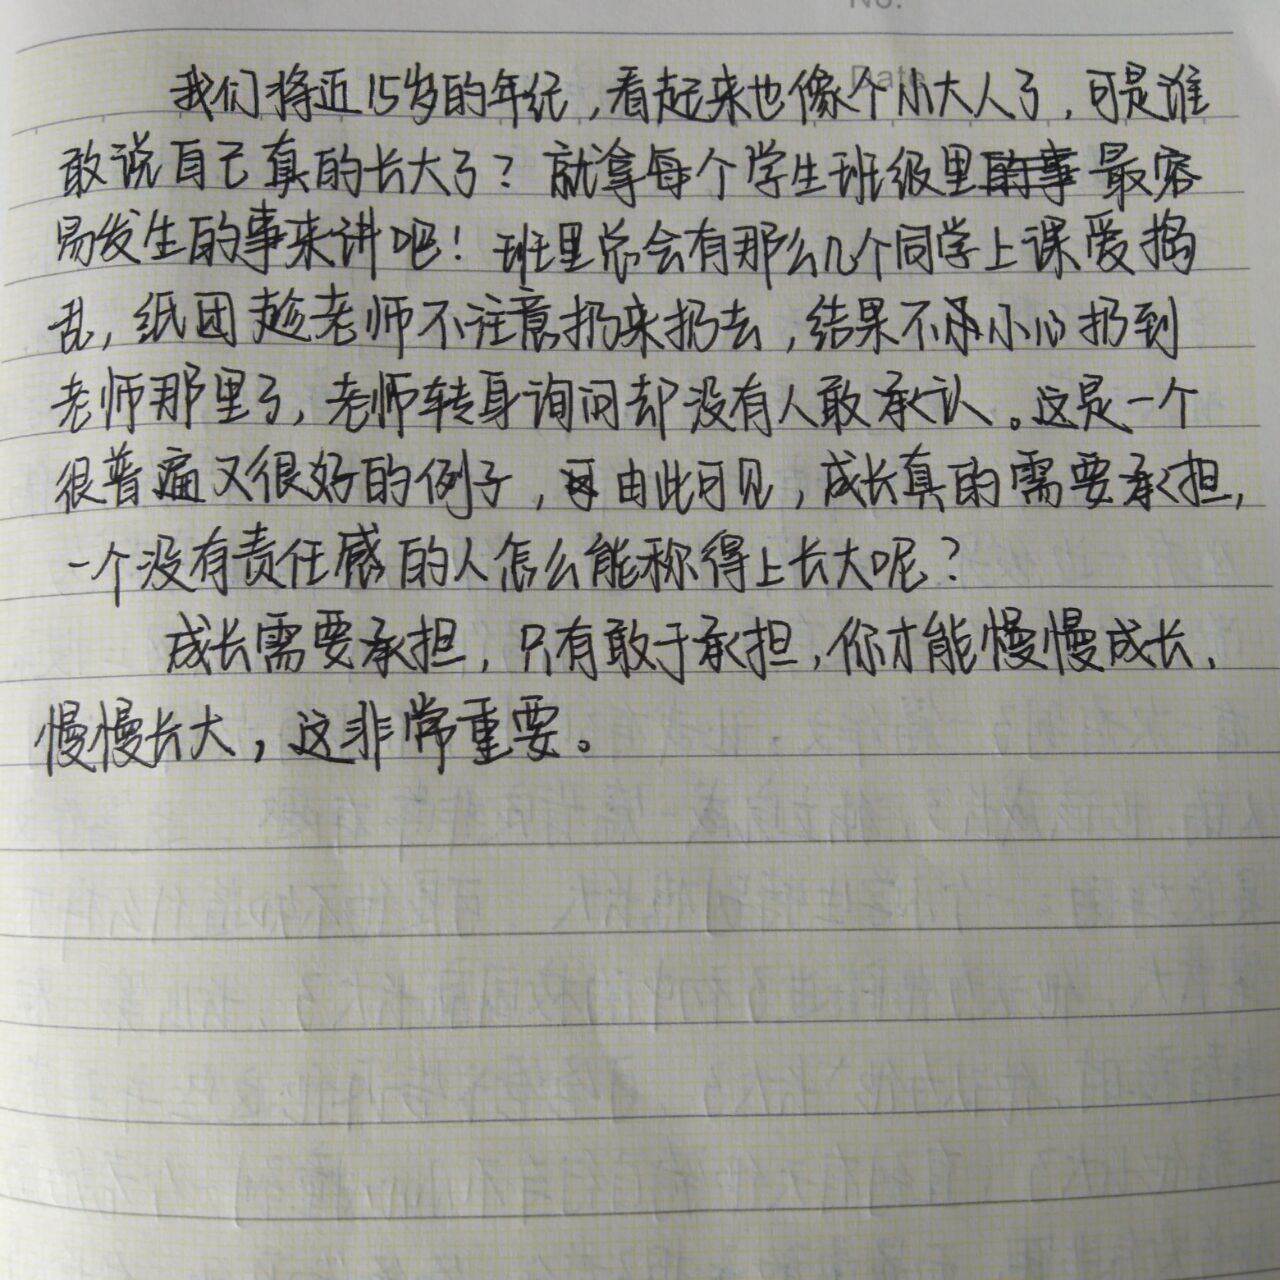 No.
Date
我们将近15岁的年纪，看起来也像个小大人了，可是谁
敢说自己真的长大了？就拿每个学生班级里最容
易发生的事来讲吧！班里总会有那么几个同学上课爱捣
乱，纸团趁老师不注意扔来扔去，结果不小心扔到
老师那里了，老师转身询问却没有人敢承认。这是一个
很普遍又很好的例子，由此可见，成长真的需要承担，
一个没有责任感的人怎么能称得上长大呢？
成长需要承担，只有敢于承担，你才能慢慢成长、
慢慢长大，这非常重要。